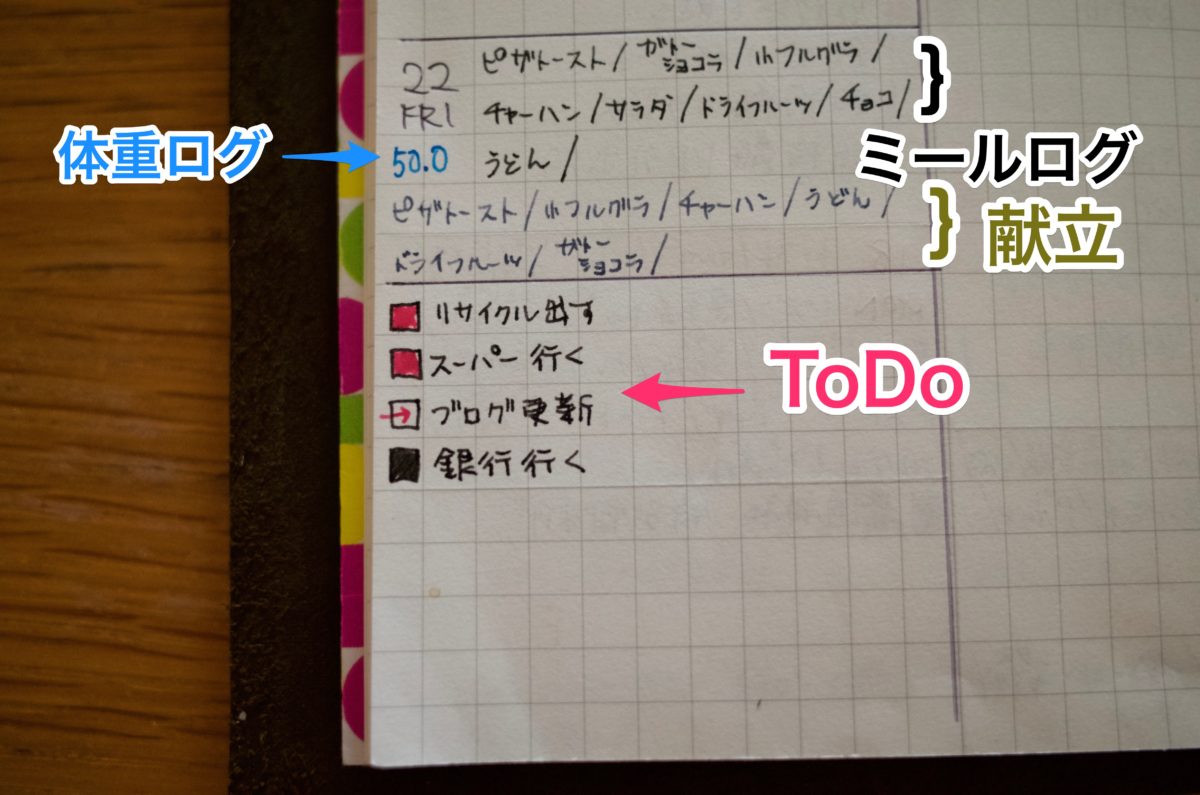 22 ピザトースト/ガトーショコラ/小フルグラ/
FRI チャーハン/サラダ/ドライフルーツ/チョコ/
体重ログ 50.0 うどん/
ミールログ
ピザトースト/小フルグラ/チャーハン/うどん/
献立
ドライフルーツ/ガトーショコラ/
リサイクル出す
スーパー行く
ToDo
ブログ更新
銀行行く